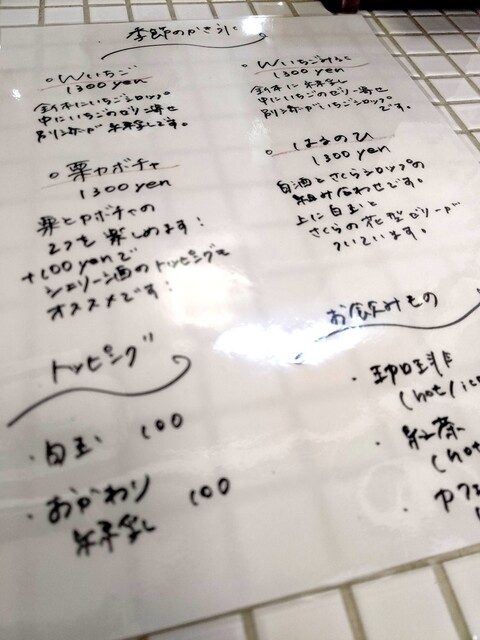 季節のかき氷
○Wいちご
1300 yen
全体にいちごシロップ
中にいちごのゼリー寄せ
別添が練乳です。
○Wいちごみるく
1300 yen
全体に練乳
中にいちごのゼリー寄せ
別添がいちごシロップ
です。
○栗カボチャ
1300 yen
栗とカボチャの
2つを楽しめます!
+100yenで
シェリー酒のトッピングも
オススメです!
○はるのひ
1300 yen
白酒とさくらシロップの
組み合わせです。
上に白玉と
さくらの花型ゼリーが
ついています。
トッピング
・白玉 100
・おかわり 100
練乳
お飲みもの
・珈琲
(hot/ic
・紅茶
(hot
・カフ